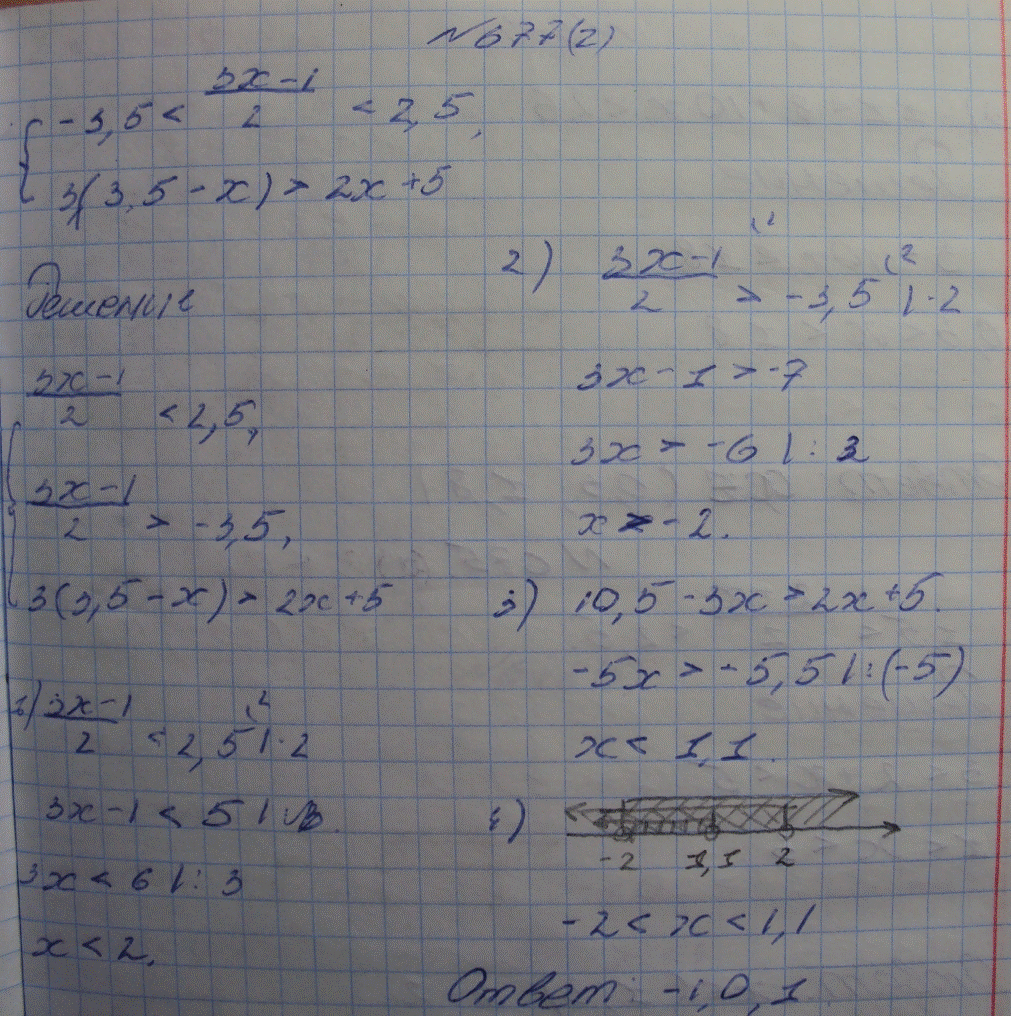 №677(2)
{ -3,5 < (3x-1)/2 < 2,5,
3(3,5-x) > 2x+5
Решение
{ (3x-1)/2 < 2,5,
(3x-1)/2 > -3,5,
3(3,5-x) > 2x+5
1) (3x-1)/2 < 2,5 |·2
3x-1 < 5
3x < 6 |:3
x < 2.
2) (3x-1)/2 > -3,5 |·2
3x-1 > -7
3x > -6 |:3
x > -2.
3) 10,5-3x > 2x+5.
-5x > -5,5 |:(-5)
x < 1,1.
4)
-2 1,1 2
-2 < x < 1,1
Ответ: -1,0,1.